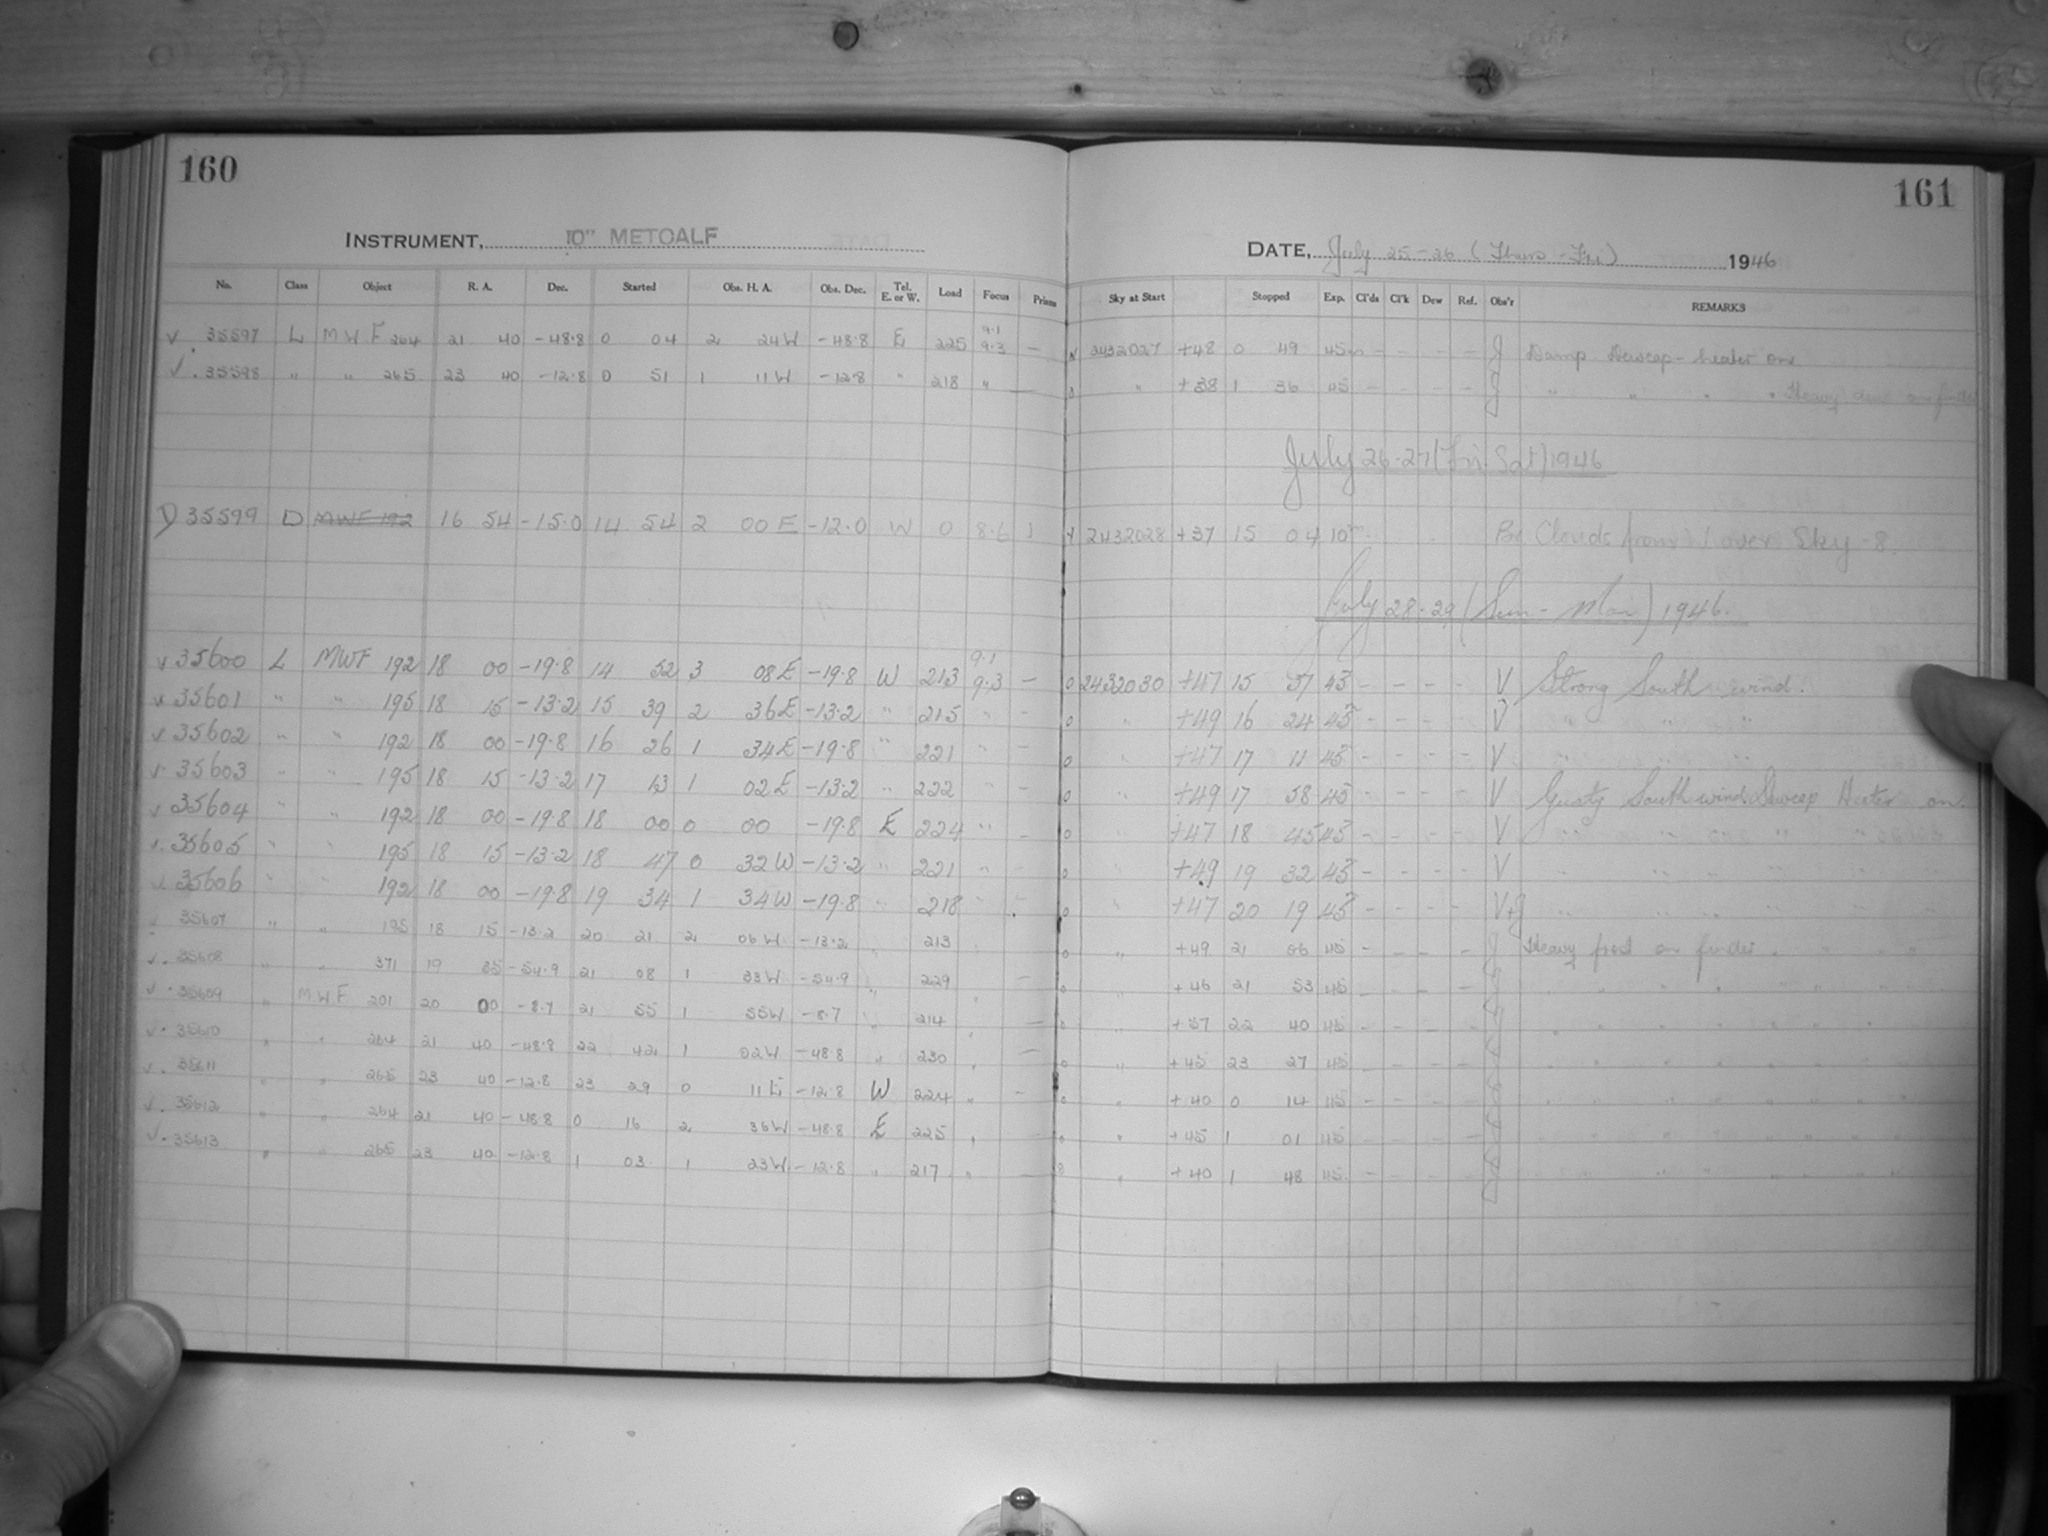 160
INSTRUMENT, 10" METCALF
No. Class Object R. A. Dec. Started Obs. H. A. Obs. Dec. Tel. E. or W. Load Focus Prism
√ 35597 L MWF 264 21 40 -48.8 0 04 2 24W -48.8 E 225 9.1 9.3 —
√ 35598 " " 265 23 40 -12.8 0 51 1 11W -12.8 " 218 " —
D 35599 D MWF 192 16 54 -15.0 14 54 2 00E -12.0 W 0 8.6 1
√ 35600 L MWF 192 18 00 -19.8 14 52 3 08E -19.8 W 213 9.1 9.3 —
√ 35601 " " 195 18 15 -13.2 15 39 2 36E -13.2 " 215 " -
√ 35602 " " 192 18 00 -19.8 16 26 1 34E -19.8 " 221 " -
√ 35603 " " 195 18 15 -13.2 17 13 1 02E -13.2 " 222 " -
√ 35604 " " 192 18 00 -19.8 18 00 0 00 -19.8 E 224 " -
√ 35605 " " 195 18 15 -13.2 18 47 0 32W -13.2 " 221 " -
√ 35606 " " 192 18 00 -19.8 19 34 1 34W -19.8 " 218 " -
√ 35607 " " 195 18 15 -13.2 20 21 2 06W -13.2 " 213
√ 35608 " " 371 19 35 -54.9 21 08 1 33W -54.9 " 229
√ 35609 " MWF 201 20 00 -8.7 21 55 1 55W -8.7 " 214 " —
√ 35610 " " 264 21 40 -48.8 22 42 1 02W -48.8 " 230 " —
√ 35611 " " 265 23 40 -12.8 23 29 0 11E -12.8 W 224 " -
√ 35612 " " 264 21 40 -48.8 0 16 2 36W -48.8 E 225 "
√ 35613 " " 265 23 40 -12.8 1 03 1 23W -12.8 " 217 " —
161
DATE, July 25-26 (Thurs-Fri) 1946
Sky at Start Stopped Exp. Cl'ds Cl'k Dew Ref. Obs'r REMARKS
2432027 +48 0 49 45m - - - - J Damp Dewcap-heater on
" +38 1 36 45 - - - - J " " " " Heavy dew on finder
July 26-27 (Fri Sat) 1946
2432028 +37 15 04 10m Clouds from over Sky-8.
July 28-29 (Sun-Mon) 1946.
0 2432030 +47 15 37 45 - - - - V Strong South wind.
0 " +49 16 24 45 - - - - V " " "
0 " +47 17 11 45 - - - - V " " "
0 " +49 17 58 45 - - - - V Gusty South wind Dewcap Heater on.
0 " +47 18 45 45 - - - - V " " " " " "
0 " +49 19 32 45 - - - - V " " " " " "
0 " +47 20 19 45 - - - - V+J " " " " " "
0 " +49 21 06 45 - - - - J Heavy frost on finder. " " "
0 " +46 21 53 45 - - - - J " " " " " " "
0 " +37 22 40 45 - - - - J " " " " " " "
0 " +45 23 27 45 - - - - J " " " " " " "
0 " +40 0 14 45 - - - - J " " " " " " "
0 " +45 1 01 45 - - - - J " " " " " " "
0 " +40 1 48 45 - - - - J " " " " " " "